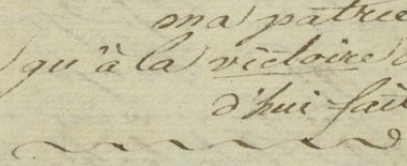 ma patrie
qu'à la victoire
d'hui fait